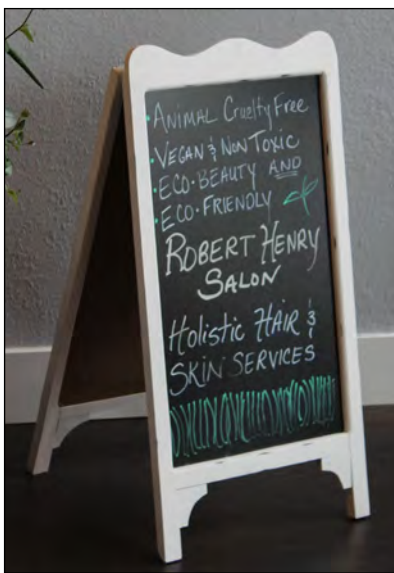 • ANIMAL Cruelty Free
• VEGAN & NON TOXIC
• ECO-BEAUTY AND
• ECO-FRIENDLY
ROBERT HENRY
SALON
Holistic HAIR &
SKIN SERVICES